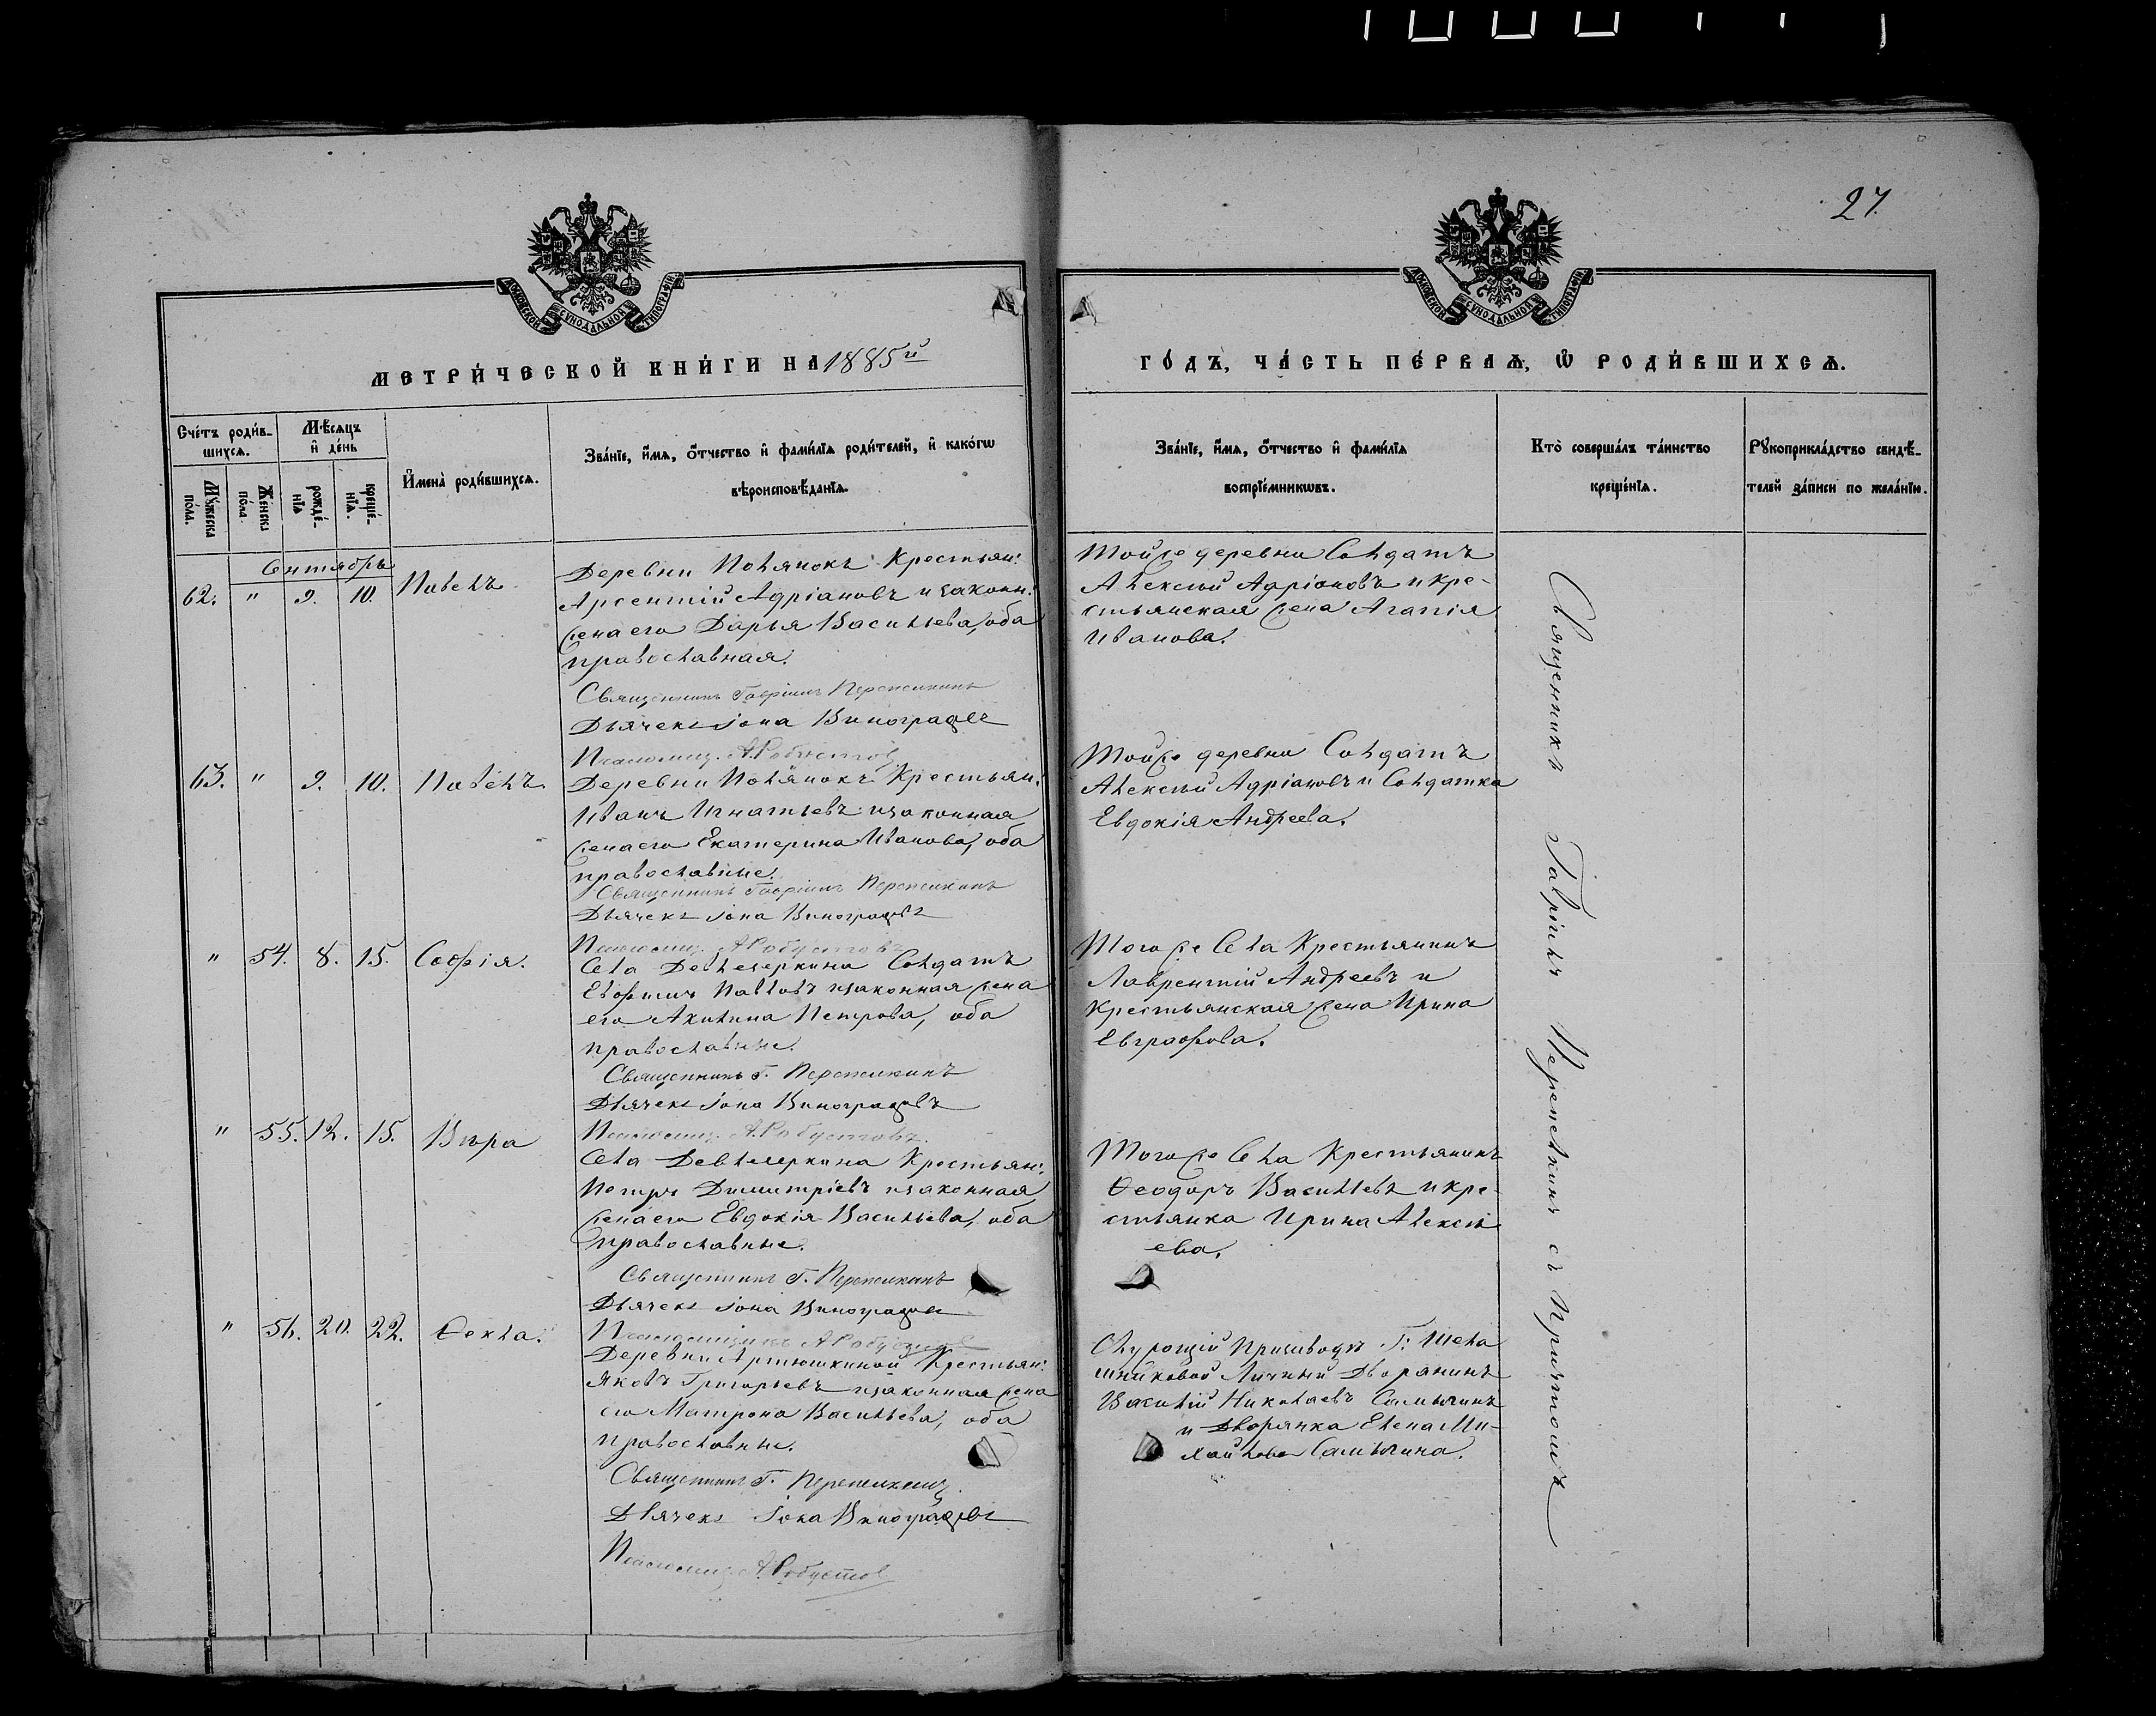 27.
МОСКОВСКОЙ СѴНОДАЛЬНОЙ ТИПОГРАФІИ
МОСКОВСКОЙ СѴНОДАЛЬНОЙ ТИПОГРАФІИ
МЕТРИ́ЧЕСКОЙ КНИ́ГИ НА 1885й
ГО́ДЪ, ЧА́СТЬ ПЕ́РВАѦ, Ѡ҆ РОДИ́ВШИХСѦ.
Сче́тъ роди́в-
шихсѧ.
Мѣ́сѧцъ
и҆ де́нь
Мꙋ́жеска по́ла.
Же́нска по́ла.
рожде́-
нїѧ
креще́-
нїѧ.
И҆мена̀ роди́вшихсѧ.
Зва́нїе, и҆́мѧ, ѻ҆́тчество и҆ фами́лїѧ роди́телей, и҆ како́гѡ
вѣроисповѣ́данїѧ.
Зва́нїе, и҆́мѧ, ѻ҆́тчество и҆ фами́лїѧ
воспрїе́мникѡвъ.
Кто̀ соверша́лъ та́инство
креще́нїѧ.
Рꙋкоприкла́дство свидѣ́-
телей за́писи по жела́нїю.
Сентябрь
62. " 9. 10. Павелъ
Деревни Полянокъ Крестьян:
Арсентій Адріановъ и законн:
жена его Дарья Васильева, оба
православная.
Священникъ Гавріилъ Перепелкинъ
Дьячекъ Іона Виноградовъ
Псаломщ. А. Робустов
Тойже деревни Солдатъ
Алексѣй Адріановъ и кре-
стьянская жена Агапія
Иванова.
63. " 9. 10. Павелъ.
Деревни Полянокъ Крестьян:
Иванъ Игнатьевъ и законная
жена его Екатерина Иванова, оба
православные.
Священникъ Гавріилъ Перепелкинъ
Дьячекъ Іона Виноградовъ
Псаломщ. А. Робустовъ
Тойже деревни Солдатъ
Алексѣй Адріановъ и Солдатка
Евдокія Андреева.
" 54. 8. 15. Софія.
Села Девлезеркина Солдатъ
Павловъ и законная жена
его Акилина Петрова, оба
православные.
Священникъ Г. Перепелкинъ
Дьячекъ Іона Виноградовъ
Псаломщ. А. Робустовъ.
Того же Села Крестьянинъ
Лаврентій Андреевъ и
Крестьянская жена Ирина
Евграфова.
" 55. 12. 15. Вѣра
Села Девлезеркина Крестьян:
Петръ Димитріевъ и законная
жена его Евдокія Васильева, оба
православные.
Священникъ Г. Перепелкинъ
Дьячекъ Іона Виноградовъ
Псаломщикъ А. Робустов
Того же Села Крестьянинъ
Ѳеодоръ Васильевъ и кре-
стьянка Ирина Алексѣ
ева.
" 56. 20. 22. Ѳекла.
Деревни Артюшкиной Крестьян:
Яковъ Григорьевъ и законная жена
его Матрона Васильева, оба
православные.
Священникъ Г. Перепелкинъ
Дьячекъ Іона Виноградовъ
Псаломщ. А. Робустов
Г. Шела
шниковой Личный Дворянинъ
Василій Николаевъ
и Дворянка Елена Ми-
хайлова
Священникъ Гавріилъ Перепелкинъ съ Причтомъ